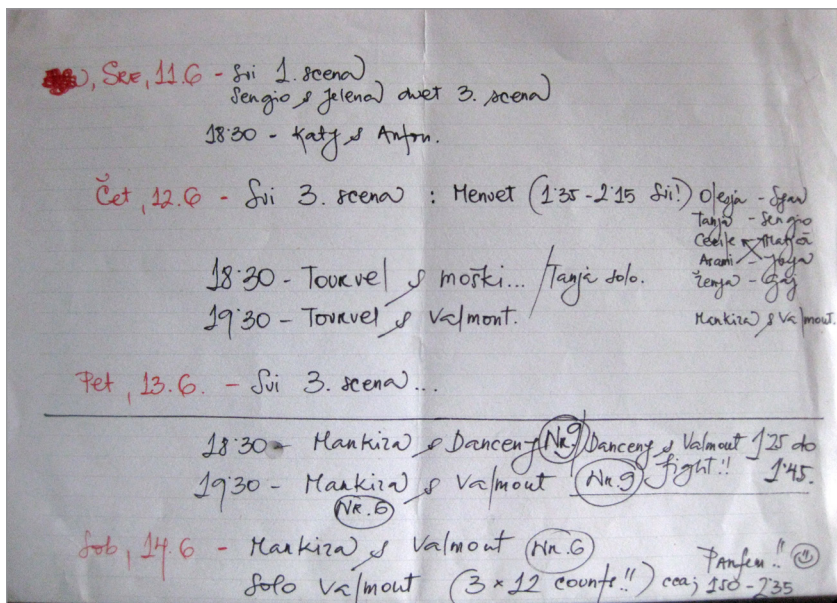 , SRE, 11.6 - Svi 1. scena
Sergio & Jelena duet 3. scena
18:30 - Katy & Anton.
Čet, 12.6 - Svi 3. scena : Menuet (1:35 - 2:15 Svi!)
Olesja -
Tanja - Sergio
Cecile Matjaž
Asami
Ženja - Gaj
Markiza & Valmont.
18:30 - Tourvel & moški... / Tanja solo.
19:30 - Tourvel & Valmont.
Pet, 13.6. - Svi 3. scena...
18:30 - Markiza & Danceny Nr.9 / Danceny & Valmont 1'25 do
19:30 - Markiza & Valmont Nr.9 fight!! 1'45.
Nr.6
Sob, 14.6 - Markiza & Valmont Nr.6
Solo Valmont (3 x 12 counts!!) cca; 1:50 - 2:35